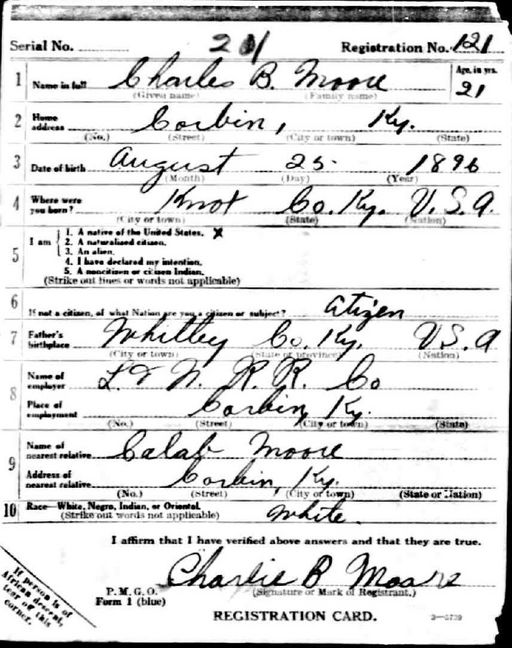 Serial No. 201 Registration No. 121
1 Name in full Charles B. Moore Age, in yrs. 21
(Given name) (Family name)
2 Home address Corbin, Ky.
(No.) (Street) (City or town) (State)
3 Date of birth August 25 1896
(Month) (Day) (Year)
4 Where were you born? Knot Co. Ky. U.S.A.
(City or town) (State) (Nation)
5 I am
1. A native of the United States. X
2. A naturalized citizen.
3. An alien.
4. I have declared my intention.
5. A noncitizen or citizen Indian.
(Strike out lines or words not applicable)
6 If not a citizen, of what Nation are you a citizen or subject? Citizen
7 Father's birthplace Whitley Co. Ky. U.S.A
(City or town) (State or province) (Nation)
8 Name of employer L & N. R. R. Co
Place of employment Corbin Ky.
(No.) (Street) (City or town) (State)
9 Name of nearest relative Calab Moore
Address of nearest relative Corbin, Ky.
(No.) (Street) (City or town) (State or Nation)
10 Race—White, Negro, Indian, or Oriental. White
(Strike out words not applicable)
I affirm that I have verified above answers and that they are true.
Charlie B Moore
P. M. G. O. (Signature or Mark of Registrant.)
Form 1 (blue)
REGISTRATION CARD.
If person is of
African descent,
tear off this
corner.